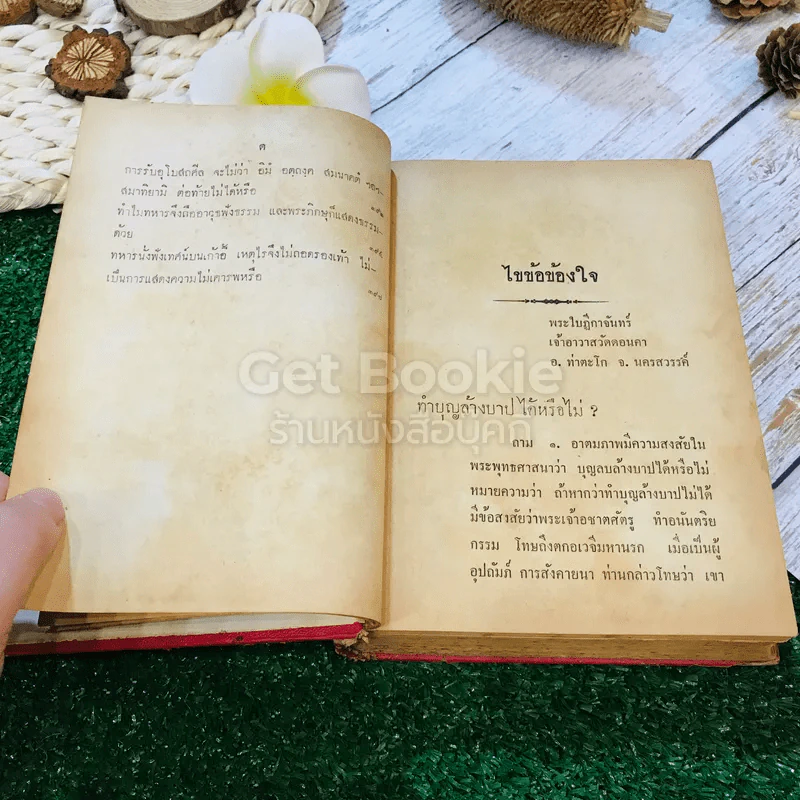 ต
การรับอุโบสถศีล จะไม่ว่า อิมํ อฏฺฐงฺค สมนฺนาคตํ
สมาทิยามิ ต่อท้ายไม่ได้หรือ
ทำไมทหารจึงถืออาวุธฟังธรรม และพระภิกษุก็แสดงธรรม
ด้วย
ทหารนั่งฟังเทศน์บนเก้าอี้ เหตุไรจึงไม่ถอดรองเท้า ไม่
เป็นการแสดงความไม่เคารพหรือ
ไขข้อข้องใจ
พระใบฎีกาจันทร์
เจ้าอาวาสวัดดอนคา
อ. ท่าตะโก จ. นครสวรรค์
Get Bookie
ร้านหนังสือบุคกี้
ทำบุญล้างบาป ได้หรือไม่ ?
ถาม ๑. อาตมภาพมีความสงสัยใน
พระพุทธศาสนาว่า บุญลบล้างบาปได้หรือไม่
หมายความว่า ถ้าหากว่าทำบุญล้างบาปไม่ได้
มีข้อสงสัยว่าพระเจ้าอชาตศัตรู ทำอนันตริย
กรรม โทษถึงตกอเวจีมหานรก เมื่อเป็นผู้
อุปถัมภ์ การสังคายนา ท่านกล่าวโทษว่า เขา